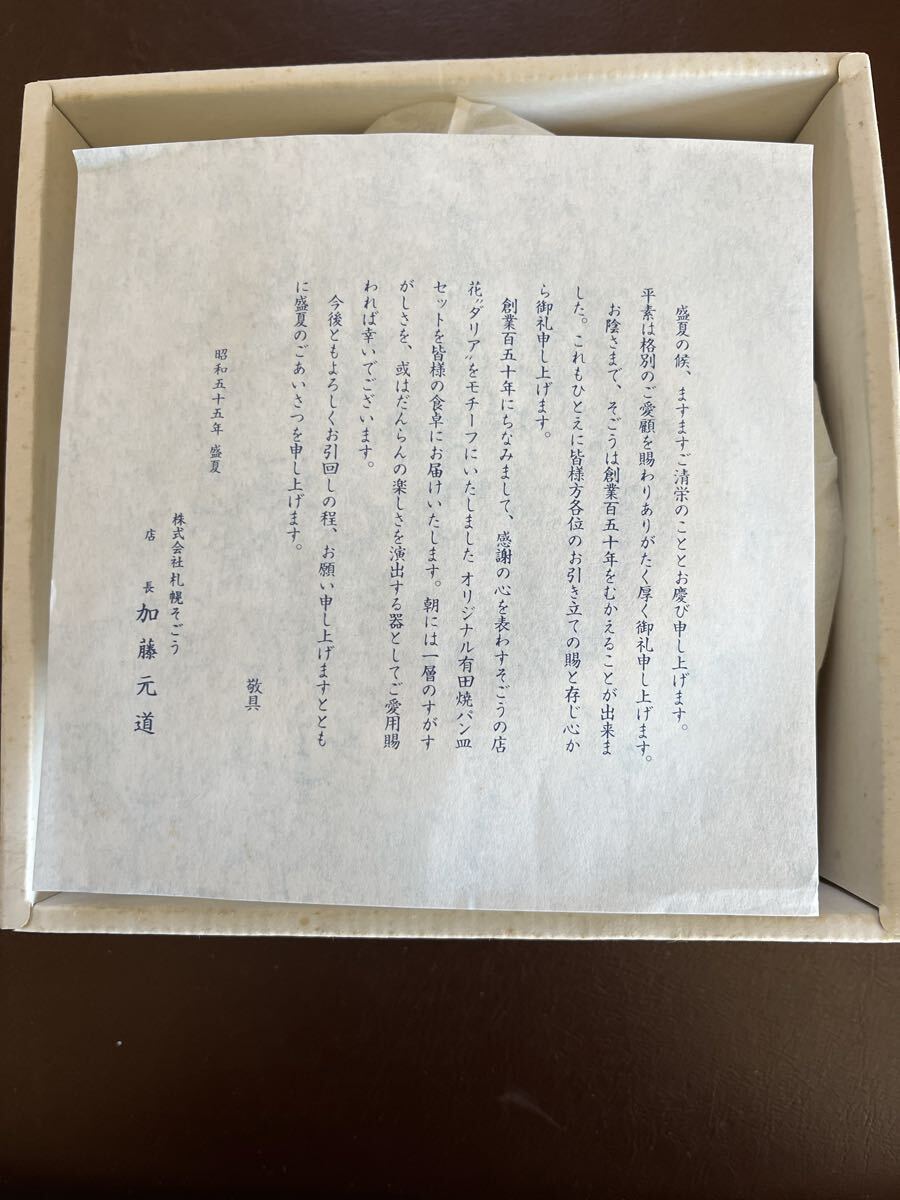 盛夏の候、ますますご清栄のこととお慶び申し上げます。
平素は格別のご愛顧を賜わりありがたく厚く御礼申し上げます。
お陰さまで、そごうは創業百五十年をむかえることが出来ま
した。これもひとえに皆様方各位のお引き立ての賜と存じ心か
ら御礼申し上げます。
創業百五十年にちなみまして、感謝の心を表わすそごうの店
花〝ダリア〟をモチーフにいたしました オリジナル有田焼パン皿
セットを皆様の食卓にお届けいたします。朝には一層のすがす
がしさを、或はだんらんの楽しさを演出する器としてご愛用賜
われば幸いでございます。
今後ともよろしくお引回しの程、お願い申し上げますととも
に盛夏のごあいさつを申し上げます。
敬具
昭和五十五年 盛夏
株式会社札幌そごう
店長 加藤元道